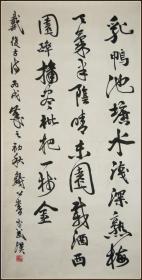 乳鴨池塘水淺深熟梅
天氣半陰晴東園載酒西
園醉摘盡枇杷一樹金
戴復古詩丙戌之初秋書武漢